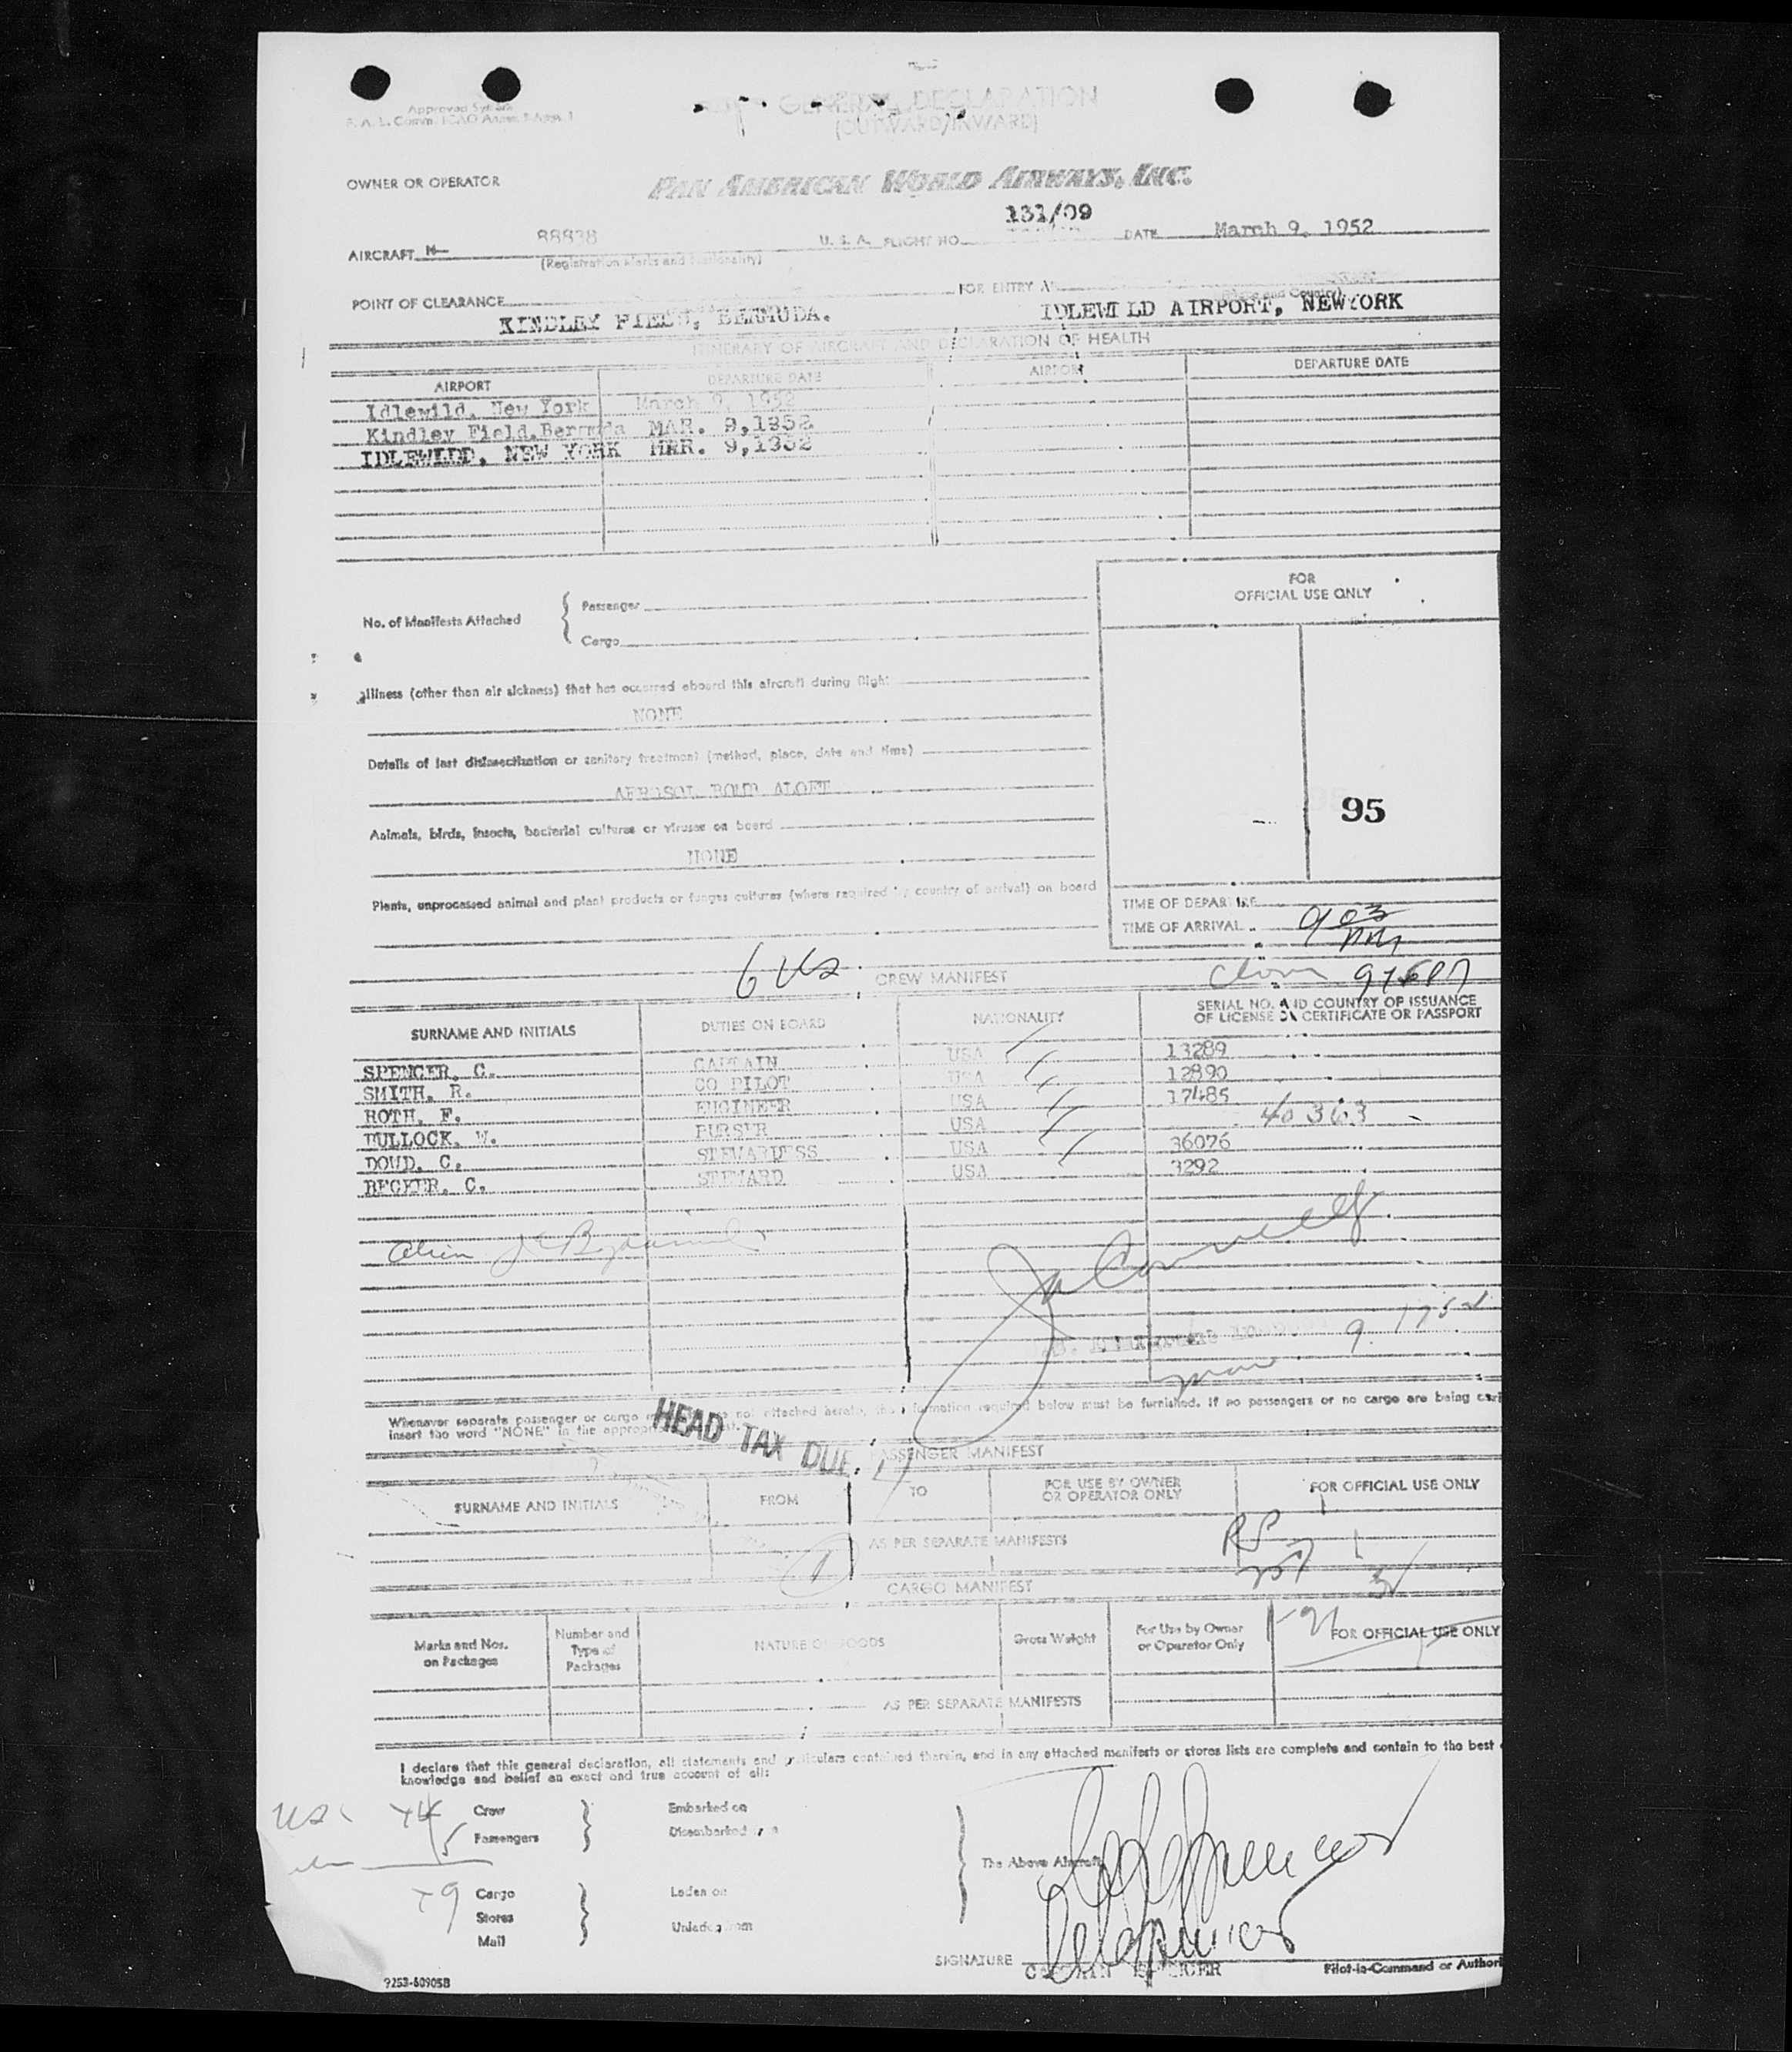 GENERAL DECLARATION
(OUTWARD/INWARD)
OWNER OR OPERATOR PAN AMERICAN WORLD AIRWAYS, INC.
131/09
AIRCRAFT N- 88838 U. S. A. FLIGHT NO. DATE March 9, 1952
(Registration Marks and Nationality)
POINT OF CLEARANCE FOR ENTRY AT
KINDLEY FIELD, BERMUDA. IDLEWILD AIRPORT, NEWYORK
ITINERARY OF AIRCRAFT AND DECLARATION OF HEALTH
AIRPORT DEPARTURE DATE AIRPORT DEPARTURE DATE
Idlewild, New York March 9, 1952
Kindley Field, Bermuda MAR. 9,1952
IDLEWILD, NEW YORK MAR. 9,1952
FOR
OFFICIAL USE ONLY
No. of Manifests Attached
Passenger
Cargo
Illness (other than air sickness) that has occurred aboard this aircraft during flight
NONE
Details of last disinsectization or sanitary treatment (method, place, date and time)
AEROSOL BOMB ALOFT
95
Animals, birds, insects, bacterial cultures or viruses on board
NONE
Plants, unprocessed animal and plant products or fungus cultures (where required by country of arrival) on board
TIME OF DEPARTURE
TIME OF ARRIVAL 9 03 PM
6 US CREW MANIFEST
SURNAME AND INITIALS DUTIES ON BOARD NATIONALITY SERIAL NO. AND COUNTRY OF ISSUANCE
OF LICENSE OR CERTIFICATE OR PASSPORT
SPENCER, C. CAPTAIN USA 13289
SMITH, R. CO PILOT USA 12890
ROTH, F. ENGINEER USA 17485
BULLOCK, W. PURSER USA 40363
DOUD, C. STEWARDESS USA 36076
BECKER, C. STEWARD USA 3292
9 1952
Whenever separate passenger or cargo not attached hereto, the information required below must be furnished. If no passengers or no cargo are being
insert the word "NONE" in the
HEAD TAX DUE
PASSENGER MANIFEST
SURNAME AND INITIALS FROM TO FOR USE BY OWNER
OR OPERATOR ONLY FOR OFFICIAL USE ONLY
AS PER SEPARATE MANIFESTS
1
CARGO MANIFEST
Marks and Nos.
on Packages Number and
Type of
Packages NATURE OF GOODS Gross Weight For Use by Owner
or Operator Only FOR OFFICIAL USE ONLY
AS PER SEPARATE MANIFESTS
I declare that this general declaration, all statements and particulars contained therein, and in any attached manifests or stores lists are complete and contain to the best
knowledge and belief an exact and true account of all:
Crew Embarked on
Passengers Disembarked
The Above Aircraft
Cargo Laden on
Stores
Mail Unladen from
SIGNATURE
CAPTAIN SPENCER Pilot-in-Command or
9253-60905B